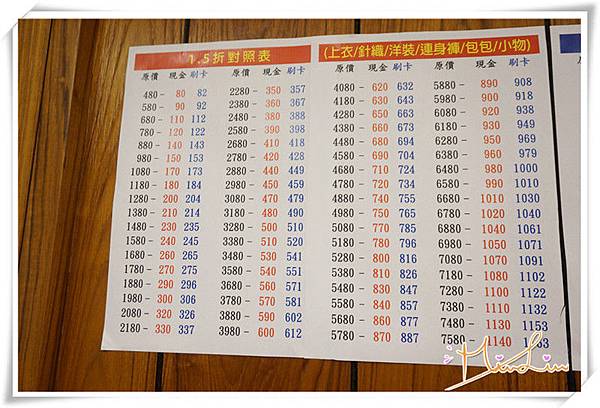 1.5折對照表
(上衣/針織/洋裝/連身褲/包包/小物)
原價 現金 刷卡 原價 現金 刷卡 原價 現金 刷卡 原價 現金 刷卡
480- 80 82 2280- 350 357 4080- 620 632 5880- 890 908
580- 90 92 2380- 360 367 4180- 630 643 5980- 900 918
680- 110 112 2480- 380 388 4280- 650 663 6080- 920 938
780- 120 122 2580- 390 398 4380- 660 673 6180- 930 949
880- 140 143 2680- 410 418 4480- 680 694 6280- 950 969
980- 150 153 2780- 420 428 4580- 690 704 6380- 960 979
1080- 170 173 2880- 440 449 4680- 710 724 6480- 980 1000
1180- 180 184 2980- 450 459 4780- 720 734 6580- 990 1010
1280- 200 204 3080- 470 479 4880- 740 755 6680- 1010 1030
1380- 210 214 3180- 480 490 4980- 750 765 6780- 1020 1040
1480- 230 235 3280- 500 510 5080- 770 785 6880- 1040 1061
1580- 240 245 3380- 510 520 5180- 780 796 6980- 1050 1071
1680- 260 265 3480- 530 541 5280- 800 816 7080- 1070 1091
1780- 270 275 3580- 540 551 5380- 810 826 7180- 1080 1102
1880- 290 296 3680- 560 571 5480- 830 847 7280- 1100 1122
1980- 300 306 3780- 570 581 5580- 840 857 7380- 1110 1132
2080- 320 326 3880- 590 602 5680- 860 877 7480- 1130 1153
2180- 330 337 3980- 600 612 5780- 870 887 7580- 1140 1163
原